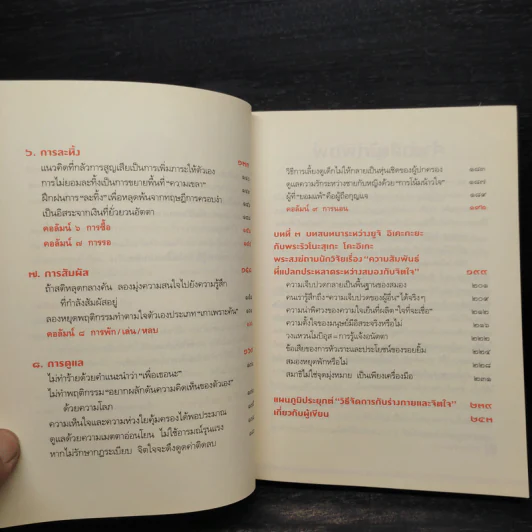 ๖. การละทิ้ง
แนวคิดที่กลัวการสูญเสียเป็นการเพิ่มภาระให้ตัวเอง
การไม่ยอมละทิ้งเป็นการขยายพื้นที่ “ความเขลา”
ฝึกฝนการ “ละทิ้ง” เพื่อหลุดพ้นจากทฤษฎีการครอบงำ
เป็นอิสระจากเงินที่ยั่วยวนอัตตา
คอลัมน์ ๖ การซื้อ
คอลัมน์ ๗ การรอ
๗. การสัมผัส
ถ้าสติหลุดกลางคัน ลองมุ่งความสนใจไปยังความรู้สึก
ที่กำลังสัมผัสอยู่
ลองหยุดพฤติกรรมทำตามใจตัวเองประเภท “เกาเพราะคัน”
คอลัมน์ ๘ การพัก/เล่น/หลบ
๘. การดูแล
ไม่ทำร้ายด้วยคำแนะนำว่า “เพื่อเธอนะ”
ไม่ทำพฤติกรรม “อยากผลักดันความคิดเห็นของตัวเอง”
ด้วยความโลภ
ความเห็นใจและความห่วงใยคุ้มครองได้พอประมาณ
ดูแลด้วยความเมตตาอ่อนโยน ไม่ใช้อารมณ์รุนแรง
หากไม่รักษากฎระเบียบ จิตใจจะดึงดูดค่าติดลบ
วิธีการเลี้ยงดูเด็กไม่ให้กลายเป็นหุ่นเชิดของผู้ปกครอง ๑๘๓
ดูแลความรักระหว่างชายกับหญิงด้วย “การโน้มน้าวใจ” ๑๘๗
ผู้ที่ “ยอมแพ้” คือผู้ถือกุญแจ ๑๘๙
คอลัมน์ ๙ การนอน ๑๙๒
บทที่ ๓ บทสนทนาระหว่างยูจิ อิเคะกะยะ
กับพระริวโนะสุเกะ โคะอิเกะ
พระสงฆ์ถามนักวิจัยเรื่อง “ความสัมพันธ์
ที่แปลกประหลาดระหว่างสมองกับจิตใจ” ๑๙๕
ความเจ็บปวดกลายเป็นพื้นฐานของสมอง ๒๐๑
คนเรารู้สึกถึง “ความเจ็บปวดของผู้อื่น” ได้จริงๆ
ความน่าพิศวงของความใจเย็นที่ผลิต “ใจที่จะเชื่อ”
ความตั้งใจของมนุษย์มีอิสระจริงหรือไม่ ๒๑๖
วงแหวนโมบิอุส = การรู้แจ้งอนัตตา ๒๒๒
ข้อเสียของการหัวเราะและประโยชน์ของรอยยิ้ม ๒๒๕
สมองหยุดพักหรือไม่ ๒๒๘
สมาธิไม่ใช่จุดมุ่งหมาย เป็นเพียงเครื่องมือ ๒๓๑
แผนภูมิประยุกต์ “วิธีจัดการกับร่างกายและจิตใจ” ๒๓๙
เกี่ยวกับผู้เขียน ๒๔๓